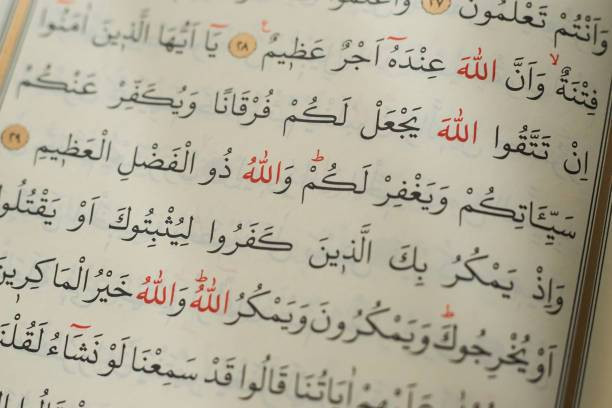 وَاَنْتُمْ تَعْلَمُونَ ٢٧ وَاعْلَمُوا
فِتْنَةٌ وَاَنَّ اللّٰهَ عِنْدَهُٓ اَجْرٌ عَظ۪يمٌ ٢٨ يَٓا اَيُّهَا الَّذ۪ينَ اٰمَنُٓوا
اِنْ تَتَّقُوا اللّٰهَ يَجْعَلْ لَكُمْ فُرْقَانًا وَيُكَفِّرْ عَنْكُمْ
سَيِّـَٔاتِكُمْ وَيَغْفِرْ لَكُمْ وَاللّٰهُ ذُو الْفَضْلِ الْعَظ۪يمِ ٢٩
وَاِذْ يَمْكُرُ بِكَ الَّذ۪ينَ كَفَرُوا لِيُثْبِتُوكَ اَوْ يَقْتُلُو
اَوْ يُخْرِجُوكَ وَيَمْكُرُونَ وَيَمْكُرُ اللّٰهُ وَاللّٰهُ خَيْرُ الْمَاكِر۪ينَ
عَلَيْهِمْ اٰيَاتُنَا قَالُوا قَدْ سَمِعْنَا لَوْ نَشَٓاءُ لَقُلْنَا